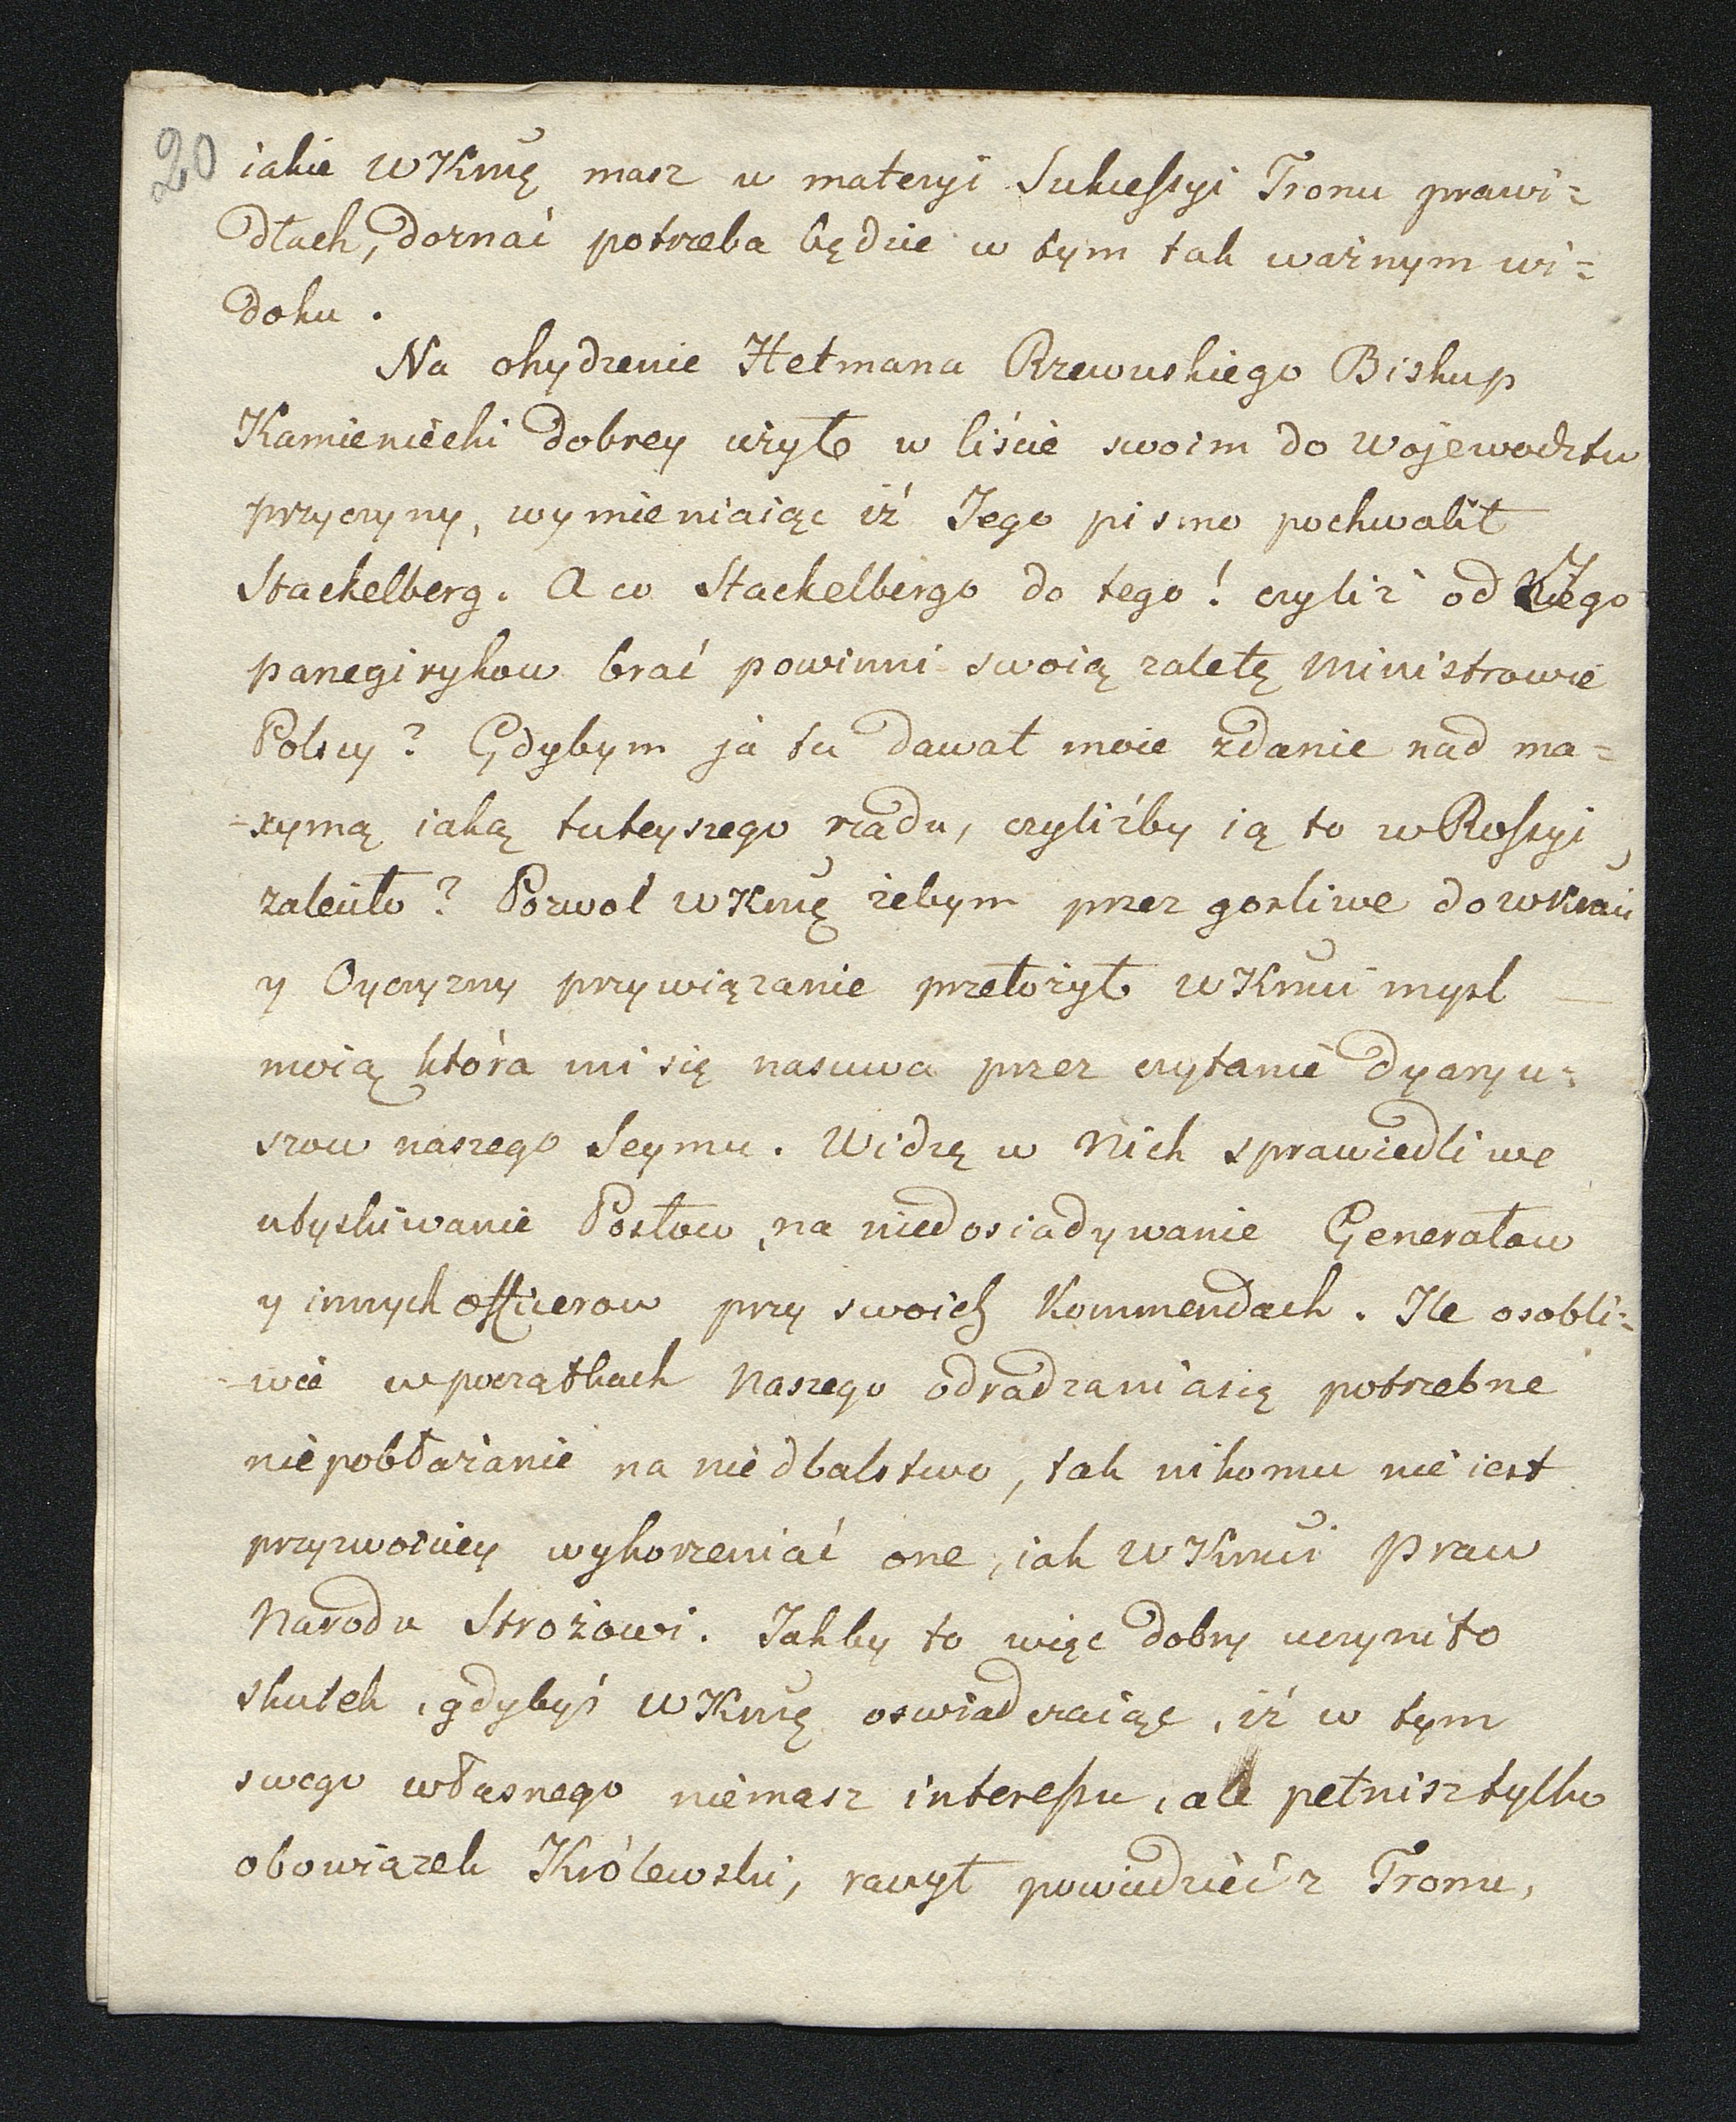 20
iakie WKmę masz w materyi Sukcessyi Tronu prawi=
dłach, doznać potrzeba będzie w tym tak ważnym wi=
doku.
Na ohydzenie Hetmana Rzewuskiego Biskup
Kamieniecki dobrey użył w liście swoim do Wojewodztw
przyczyny, wymieniaiąc iż Jego pismo pochwalił
Stackelberg. A co Stackelbergo do tego! czyliż od Jego
panegirykow brać powinni swoią zaletę Ministrowie
Polscy? Gdybym ja tu dawał moie zdanie nad ma=
-xymą iaką tuteyszego rządu, czyliżby ią to w Rossyi
zaleciło? Pozwol WKmę żebym przez gorliwe do WKmci
y Oyczyzny przywiązanie przełożył WKmci mysl
moią która mi się nasuwa przez czytanie dyaryu=
szow naszego Seymu. Widzę w Nich sprawiedliwe
utyskiwanie Posłow, na niedosiadywanie Generałow
y innych officerow przy swoich Kommendach. Ile osobli=
-wie w początkach Naszego odradzania się potrzebne
niepobłażanie na niedbalstwo, tak nikomu nie iest
przyzwoiciey wykorzeniać one, iak WKmci Praw
Narodu Strożowi. Jakby to więc dobry uczyniło
skutek, gdybyś WKmę oswiadczaiąc, iż w tym
swego własnego niemasz interessu, ale pełnisz tylko
obowiązek Królewski, raczył powiedzieć z Tronu,